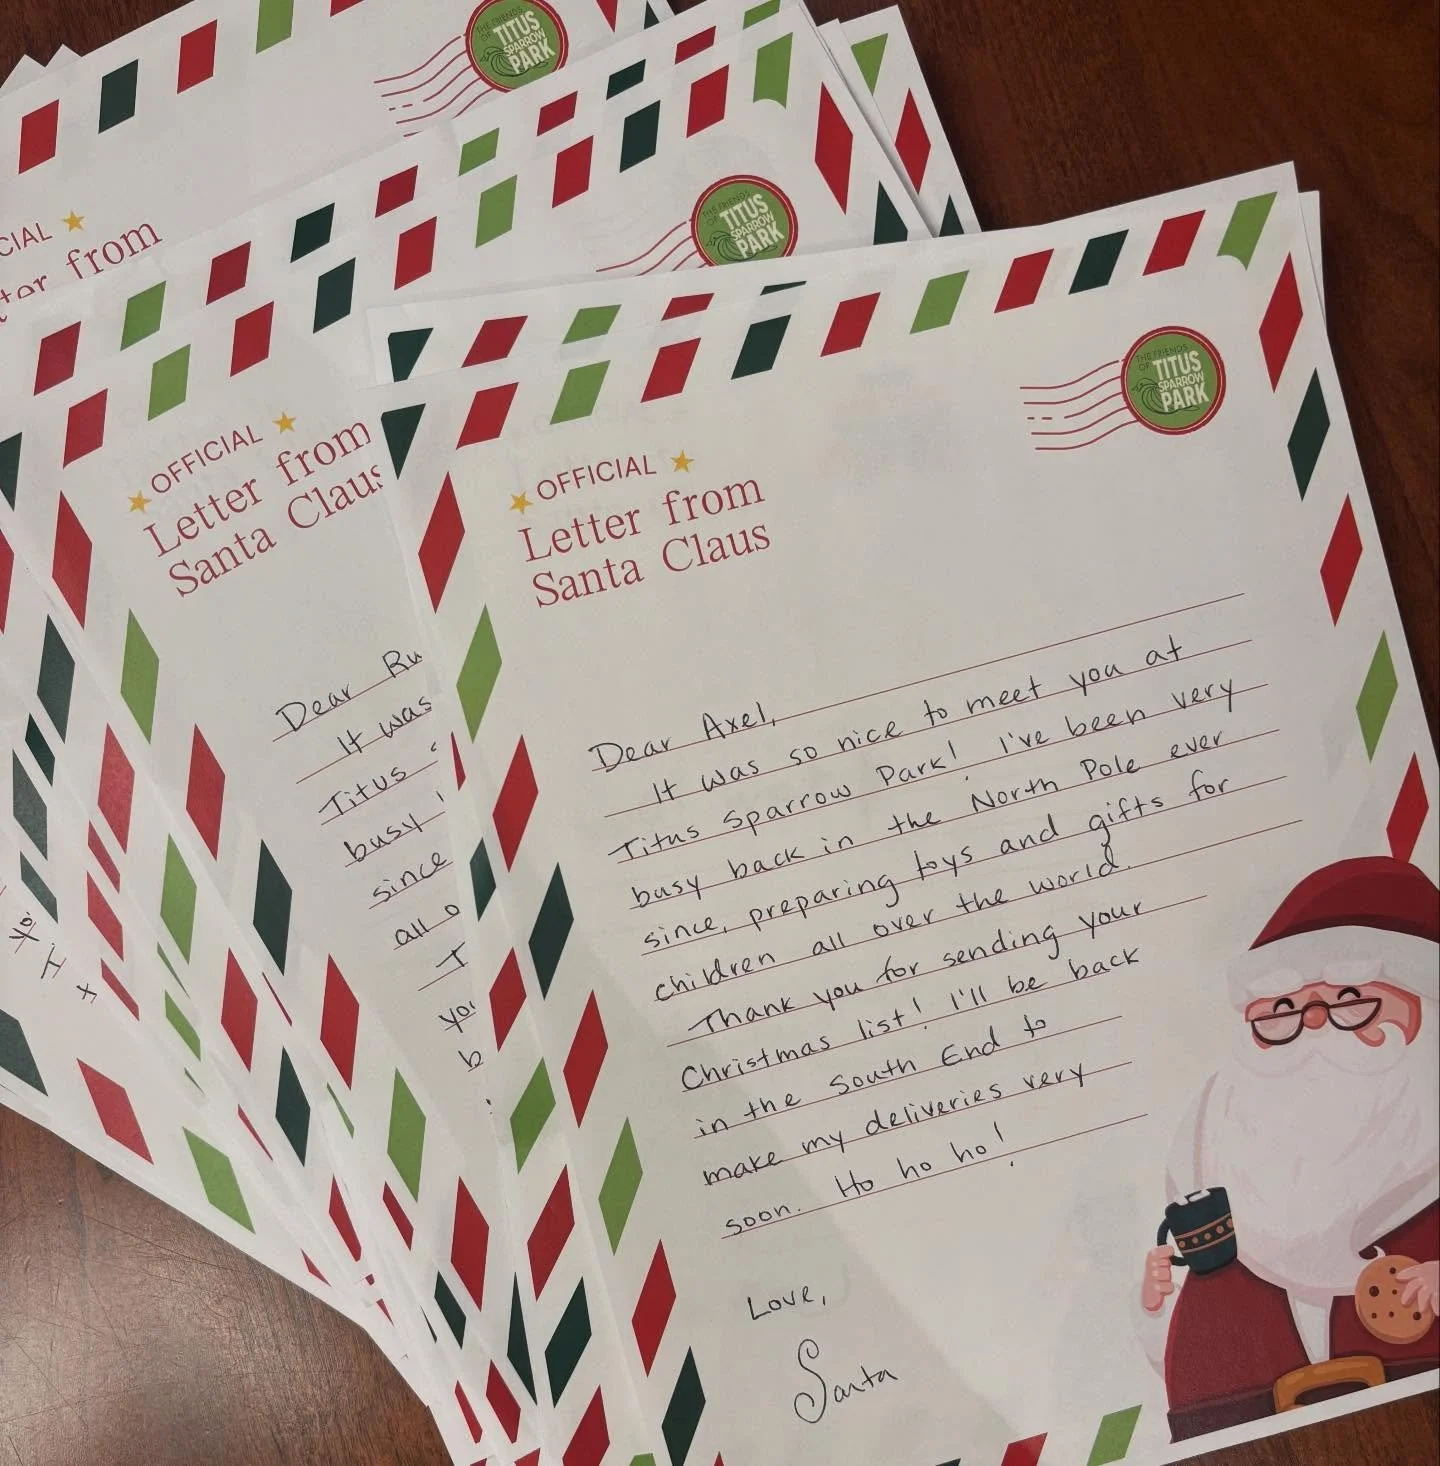 THE FRIENDS
OF TITUS
SPARROW
PARK
from
THE FRIENDS
OF TITUS
SPARROW
PARK
OFFICIAL
Letter from
Santa Claus
Dear
It was
Titus
busy
since
all
I
THE FRIENDS
OF TITUS
SPARROW
PARK
OFFICIAL
Letter from
Santa Claus
Dear Axel,
It was so nice to meet you at
Titus Sparrow Park! I've been very
busy back in the North Pole ever
since, preparing toys and gifts for
children all over the world.
Thank you for sending your
Christmas list! I'll be back
in the South End to
make my deliveries very
soon. Ho ho ho!
Love,
Santa